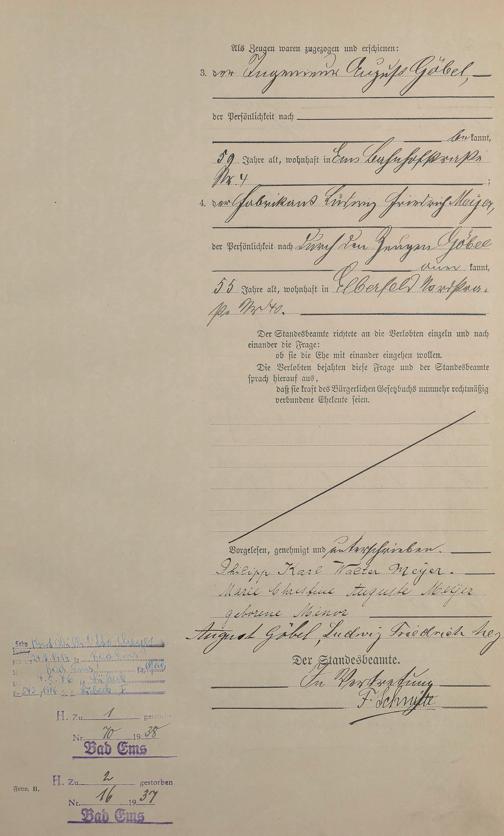 Als Zeugen waren zugezogen und erschienen:
3. der Ingenieur August Göbel, —
der Persönlichkeit nach
bekannt,
59 Jahre alt, wohnhaft in Ems Bahnhofstraße
Nr. 4 ;
4. der Fabrikant Ludwig Friedrich Meyer,
der Persönlichkeit nach durch den Zeugen Göbel
kannt,
55 Jahre alt, wohnhaft in Elberfeld Nordstra-
ße Nr.
Der Standesbeamte richtete an die Verlobten einzeln und nach
einander die Frage:
ob sie die Ehe mit einander eingehen wollen.
Die Verlobten bejahten diese Frage und der Standesbeamte
sprach hierauf aus,
daß sie kraft des Bürgerlichen Gesetzbuchs nunmehr rechtmäßig
verbundene Eheleute seien.
Vorgelesen, genehmigt und unterschrieben.
Philipp Karl Walter Meyer.
Marie Christine Auguste Meyer
geborene Menor
August Göbel, Ludwig Friedrich Mey
Der Standesbeamte.
In Vertretung
F. Schmitt
H. Zu 1
Nr. 70 1938
Bad Ems
Form. B.
H. Zu 2 gestorben
Nr. 16 1937
Bad Ems